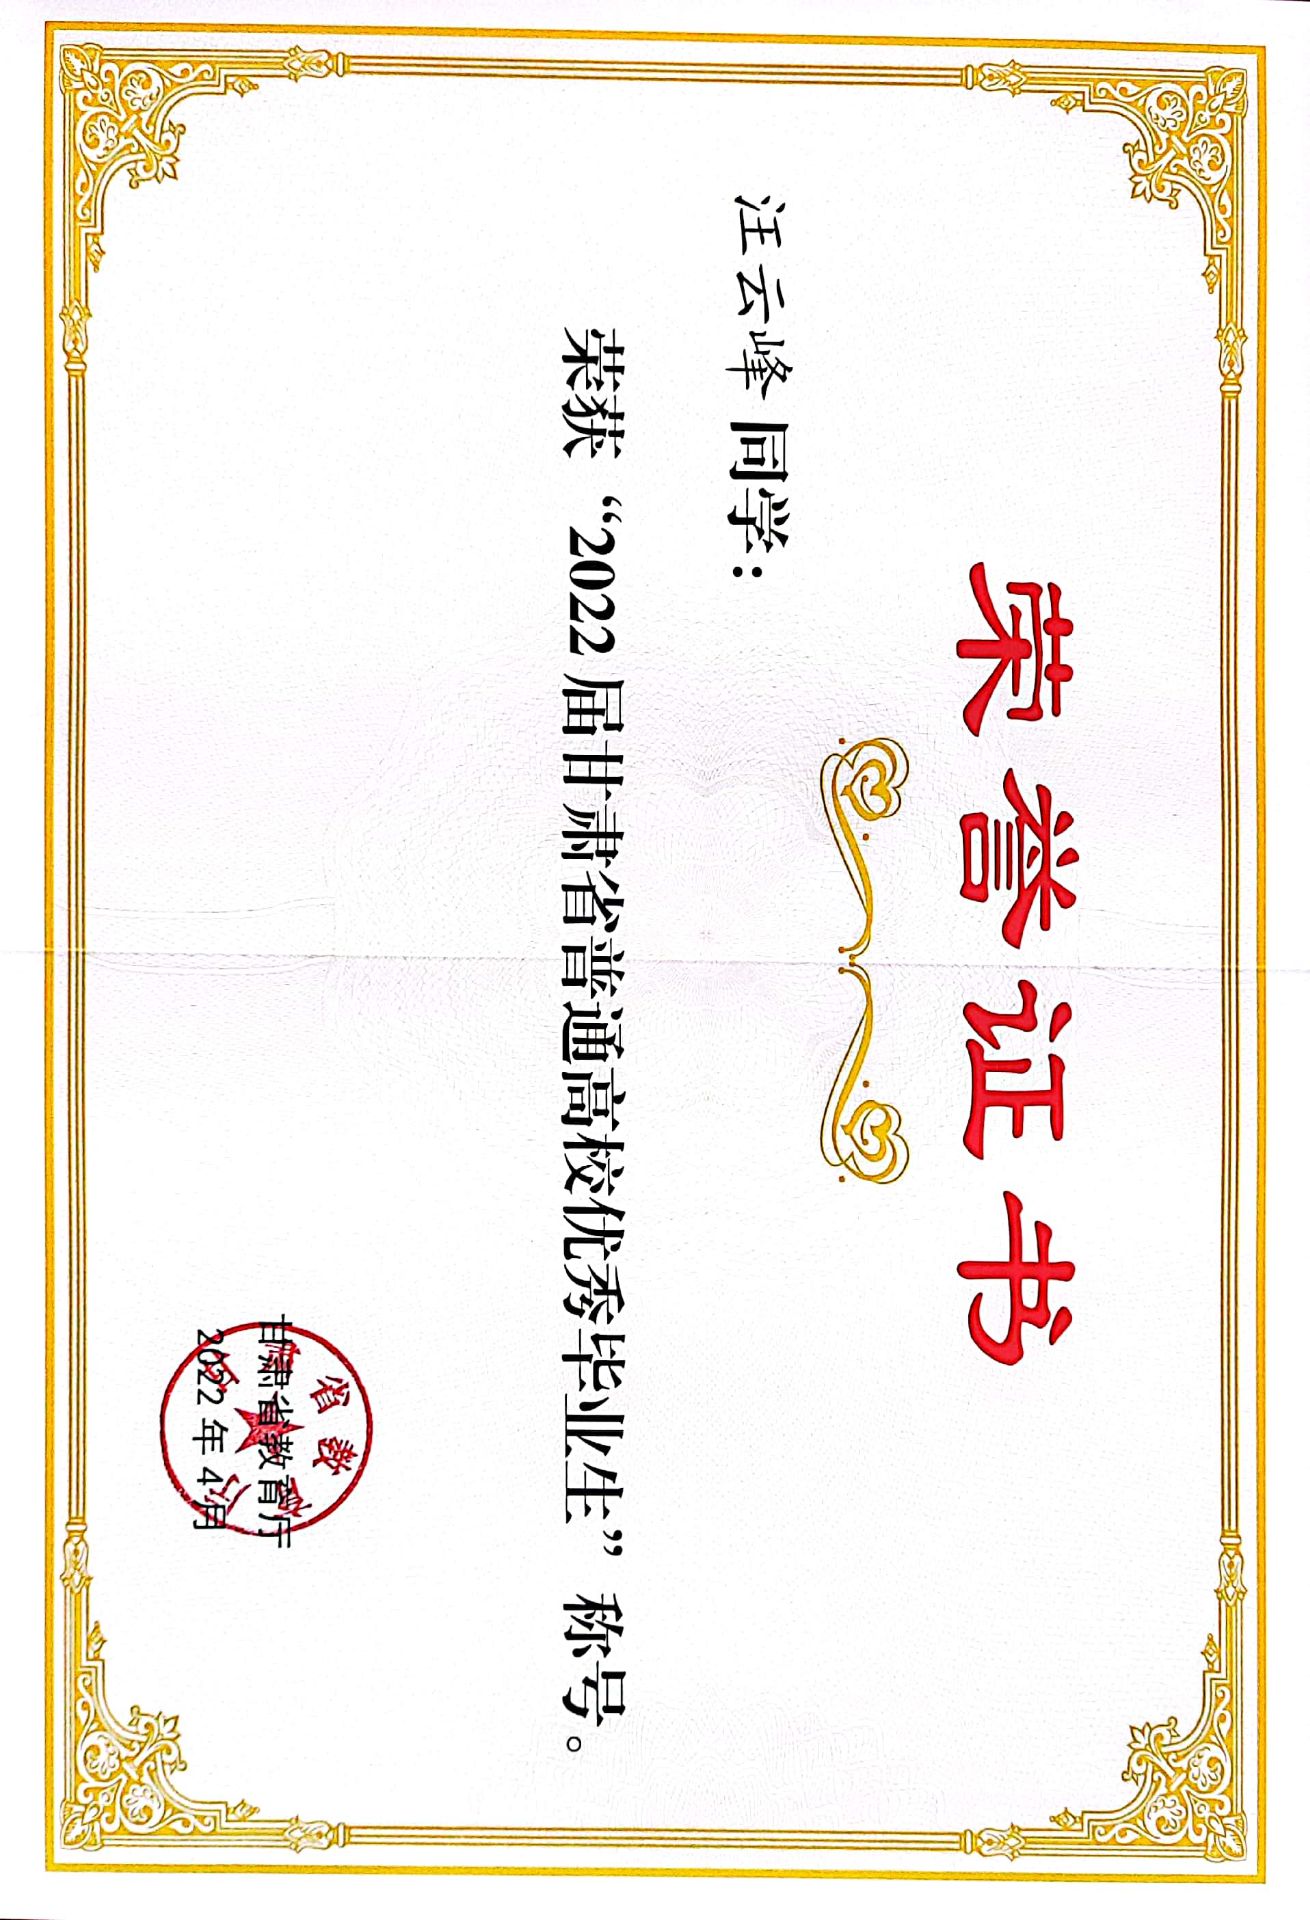 荣誉证书
汪云峰 同学：
荣获“2022届甘肃省普通高校优秀毕业生”称号。
甘肃省教育厅
2022年4月